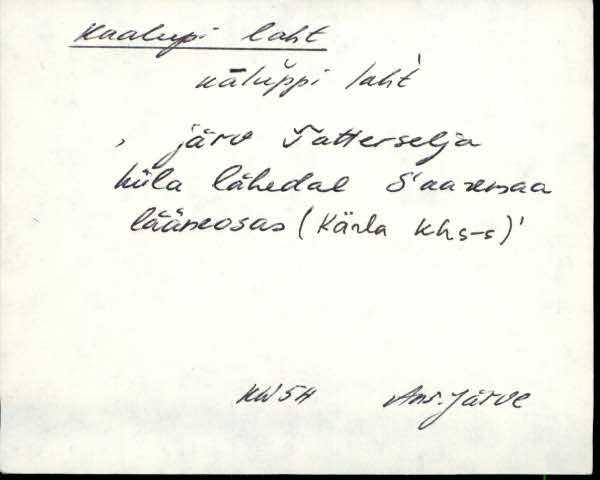 Kaalupi laht
kāluppi laht
, järv Tatterselja
küla lähedal Saaremaa
lääneosas (Kärla khs-s)'
Ans. Järve